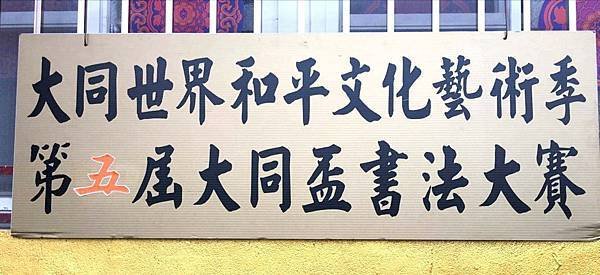 大同世界和平文化藝術季
第五屆大同盃書法大賽